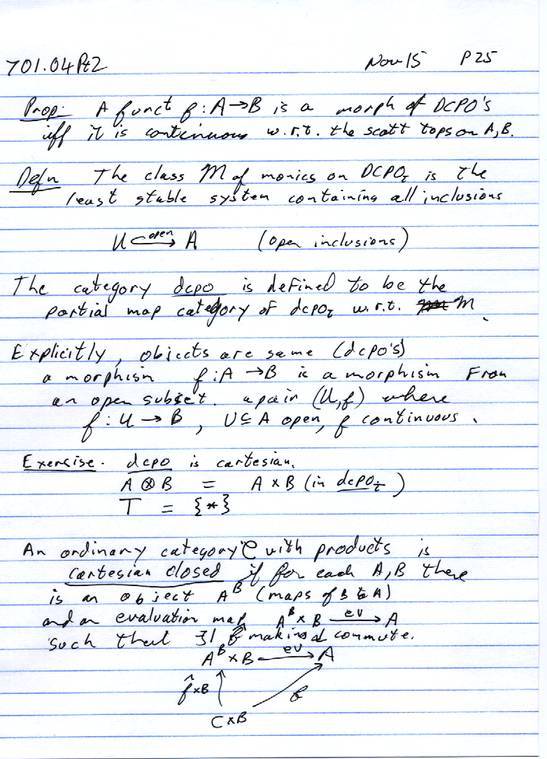 701.04 Pt2 Nov 15 P 25
Prop: A funct f : A → B is a morph of DCPO's
iff it is continuous w.r.t. the scott tops on A, B.
Defn The class M of monics on DCPO_t is the
least stable system containing all inclusions
U ↪ open A (open inclusions)
The category dcpo is defined to be the
partial map category of dcpo_t w.r.t. M.
Explicitly, objects are same (dcpo's)
a morphism f : A → B is a morphism From
an open subset. a pair (U, f) where
f : U → B, U ⊆ A open, f continuous.
Exercise. dcpo is cartesian.
A ⊗ B = A × B (in dcpo_t)
T = {*}
An ordinary category C with products is
cartesian closed if for each A, B there
is an object A^B (maps of B to A)
and an evaluation map A^B × B ev→ A
such that ∃! making commute.
A^B × B ev→ A
f̂ × B f
C × B